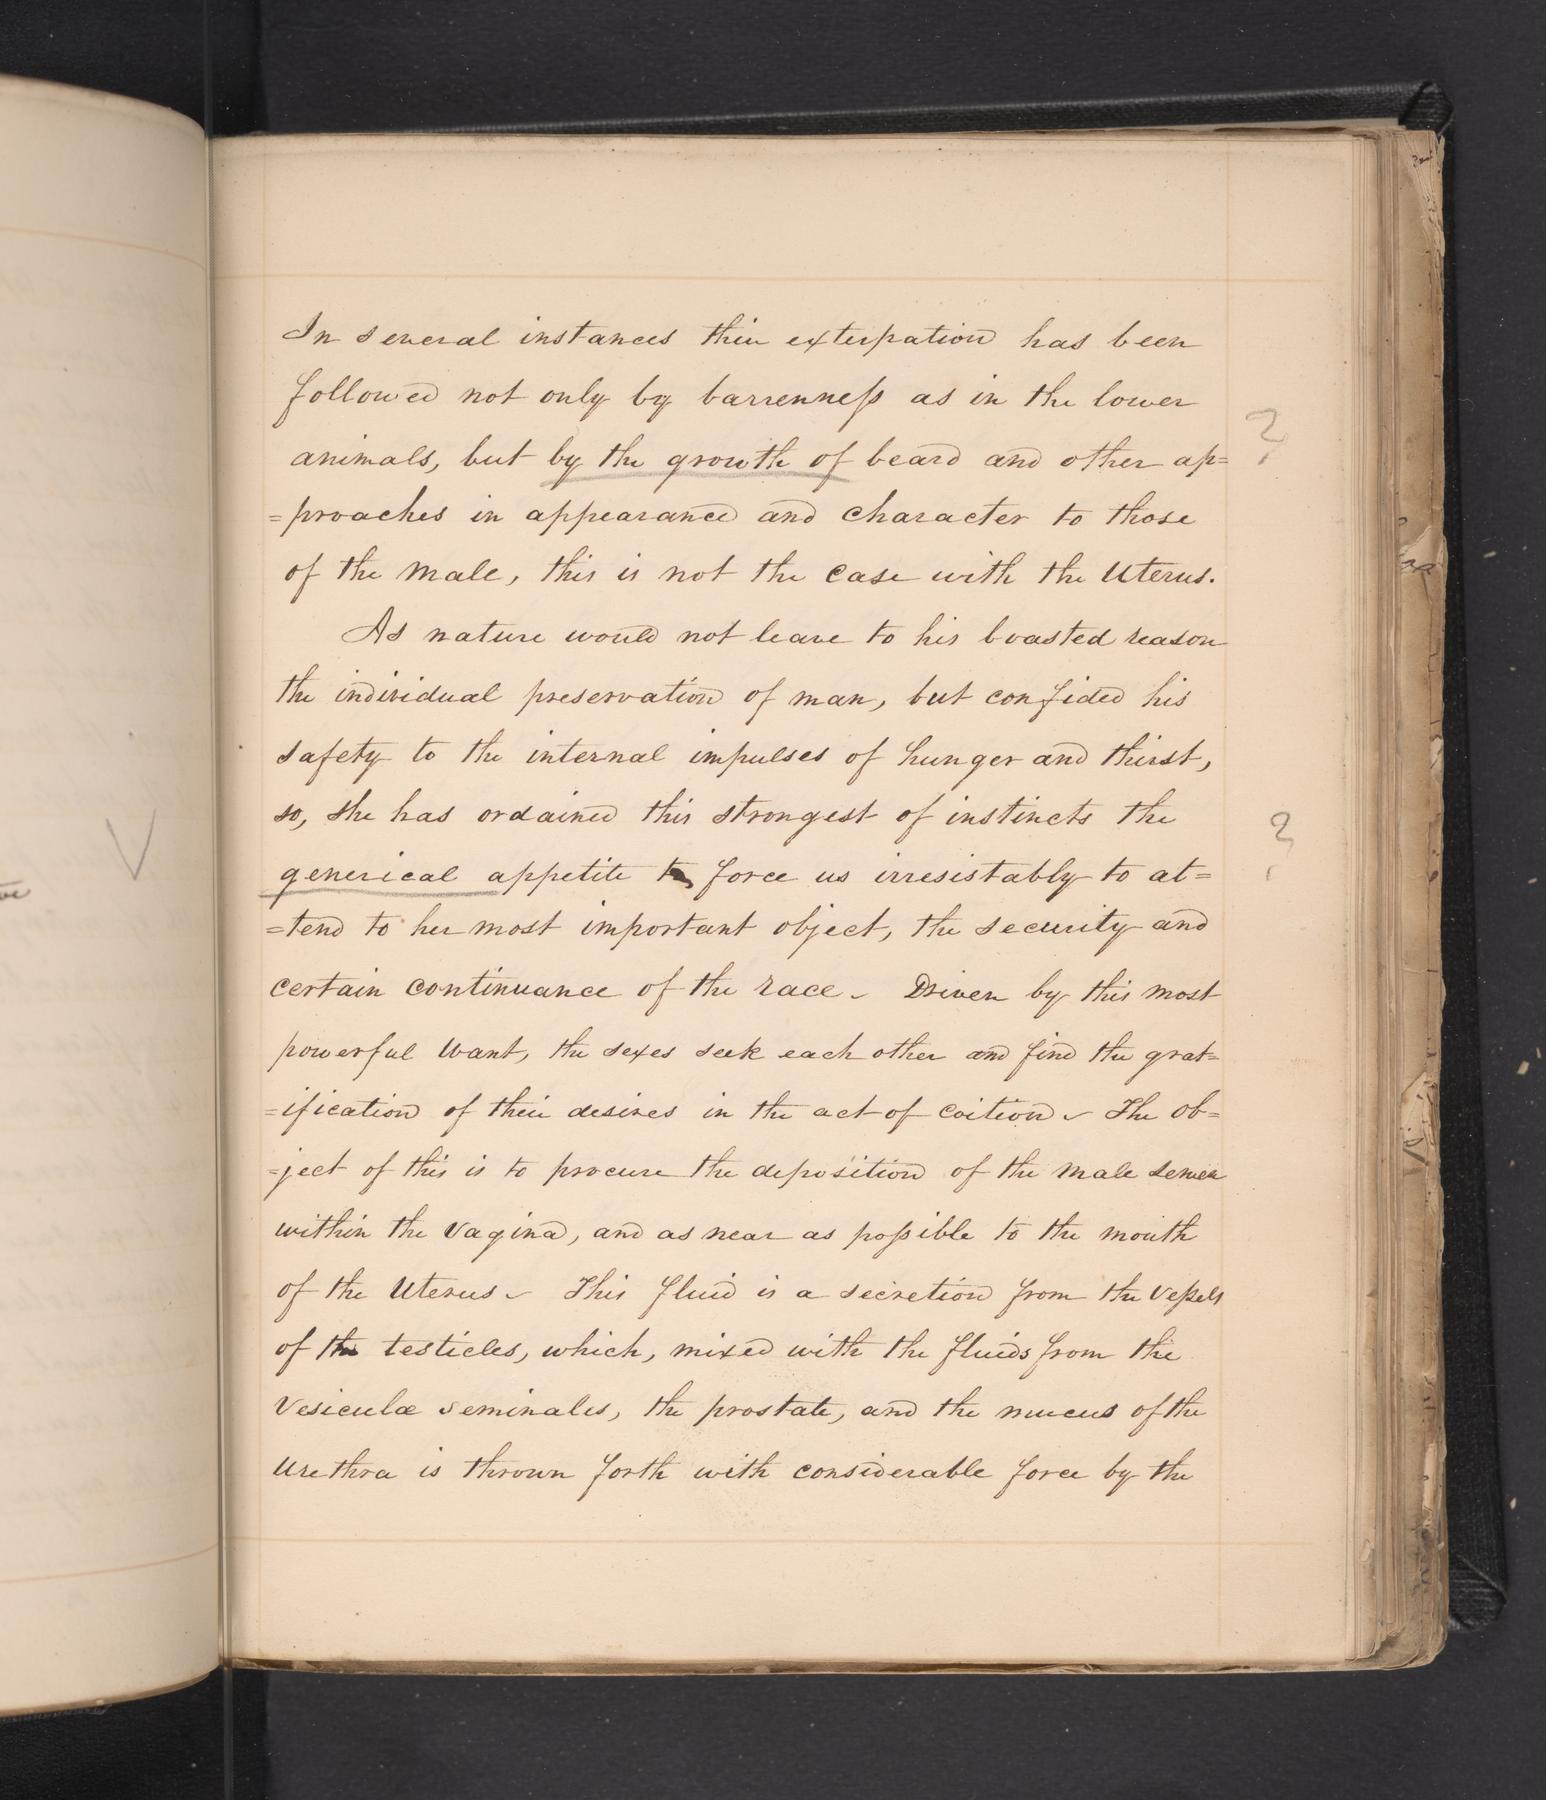 In several instances their exterpation has been
followed not only by barrenness as in the lower
animals, but by the growth of beard and other ap=
=proaches in appearance and character to those
of the male, this is not the case with the Uterus.
As nature would not leave to his boasted reason
the individual preservation of man, but confided his
safety to the internal impulses of hunger and thirst,
so, she has ordained this strongest of instincts the
generical appetite to force us irresistably to at=
=tend to her most important object, the security and
certain continuance of the race - Driven by this most
powerful want, the sexes seek each other and find the grat=
=ification of their desires in the act of coition - The ob=
=ject of this is to procure the deposition of the male semen
within the vagina, and as near as possible to the mouth
of the Uterus - This fluid is a secretion from the vessels
of the testicles, which, mixed with the fluids from the
vesiculæ seminales, the prostate, and the mucus of the
Urethra is thrown forth with considerable force by the
?
?